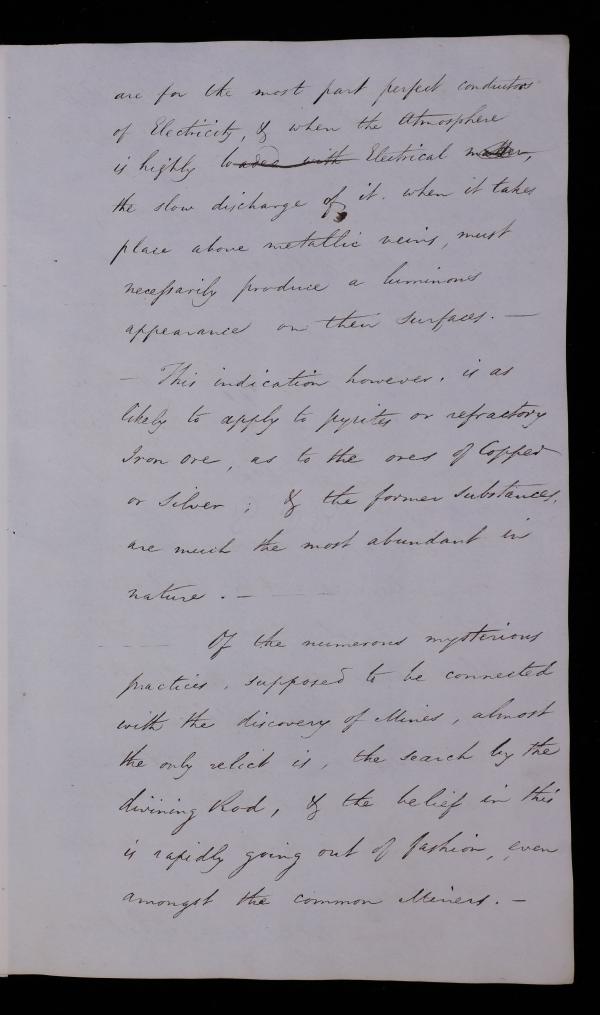 are for the most part perfect conductors
of Electricity, & when the Atmosphere
is highly loaded with Electrical matter,
the slow discharge of it. when it takes
place above metallic veins, must
necessarily produce a luminous
appearance on their surfaces. —
— This indication however, is as
likely to apply to pyrites or refractory
Iron ore, as to the ores of Copper
or Silver ; & the former substances,
are much the most abundant in
nature . —
Of the numerous mysterious
practices, supposed to be connected
with the discovery of Mines, almost
the only relict is, the search by the
divining Rod, & the belief in this
is rapidly going out of fashion, even
amongst the common Miners. —